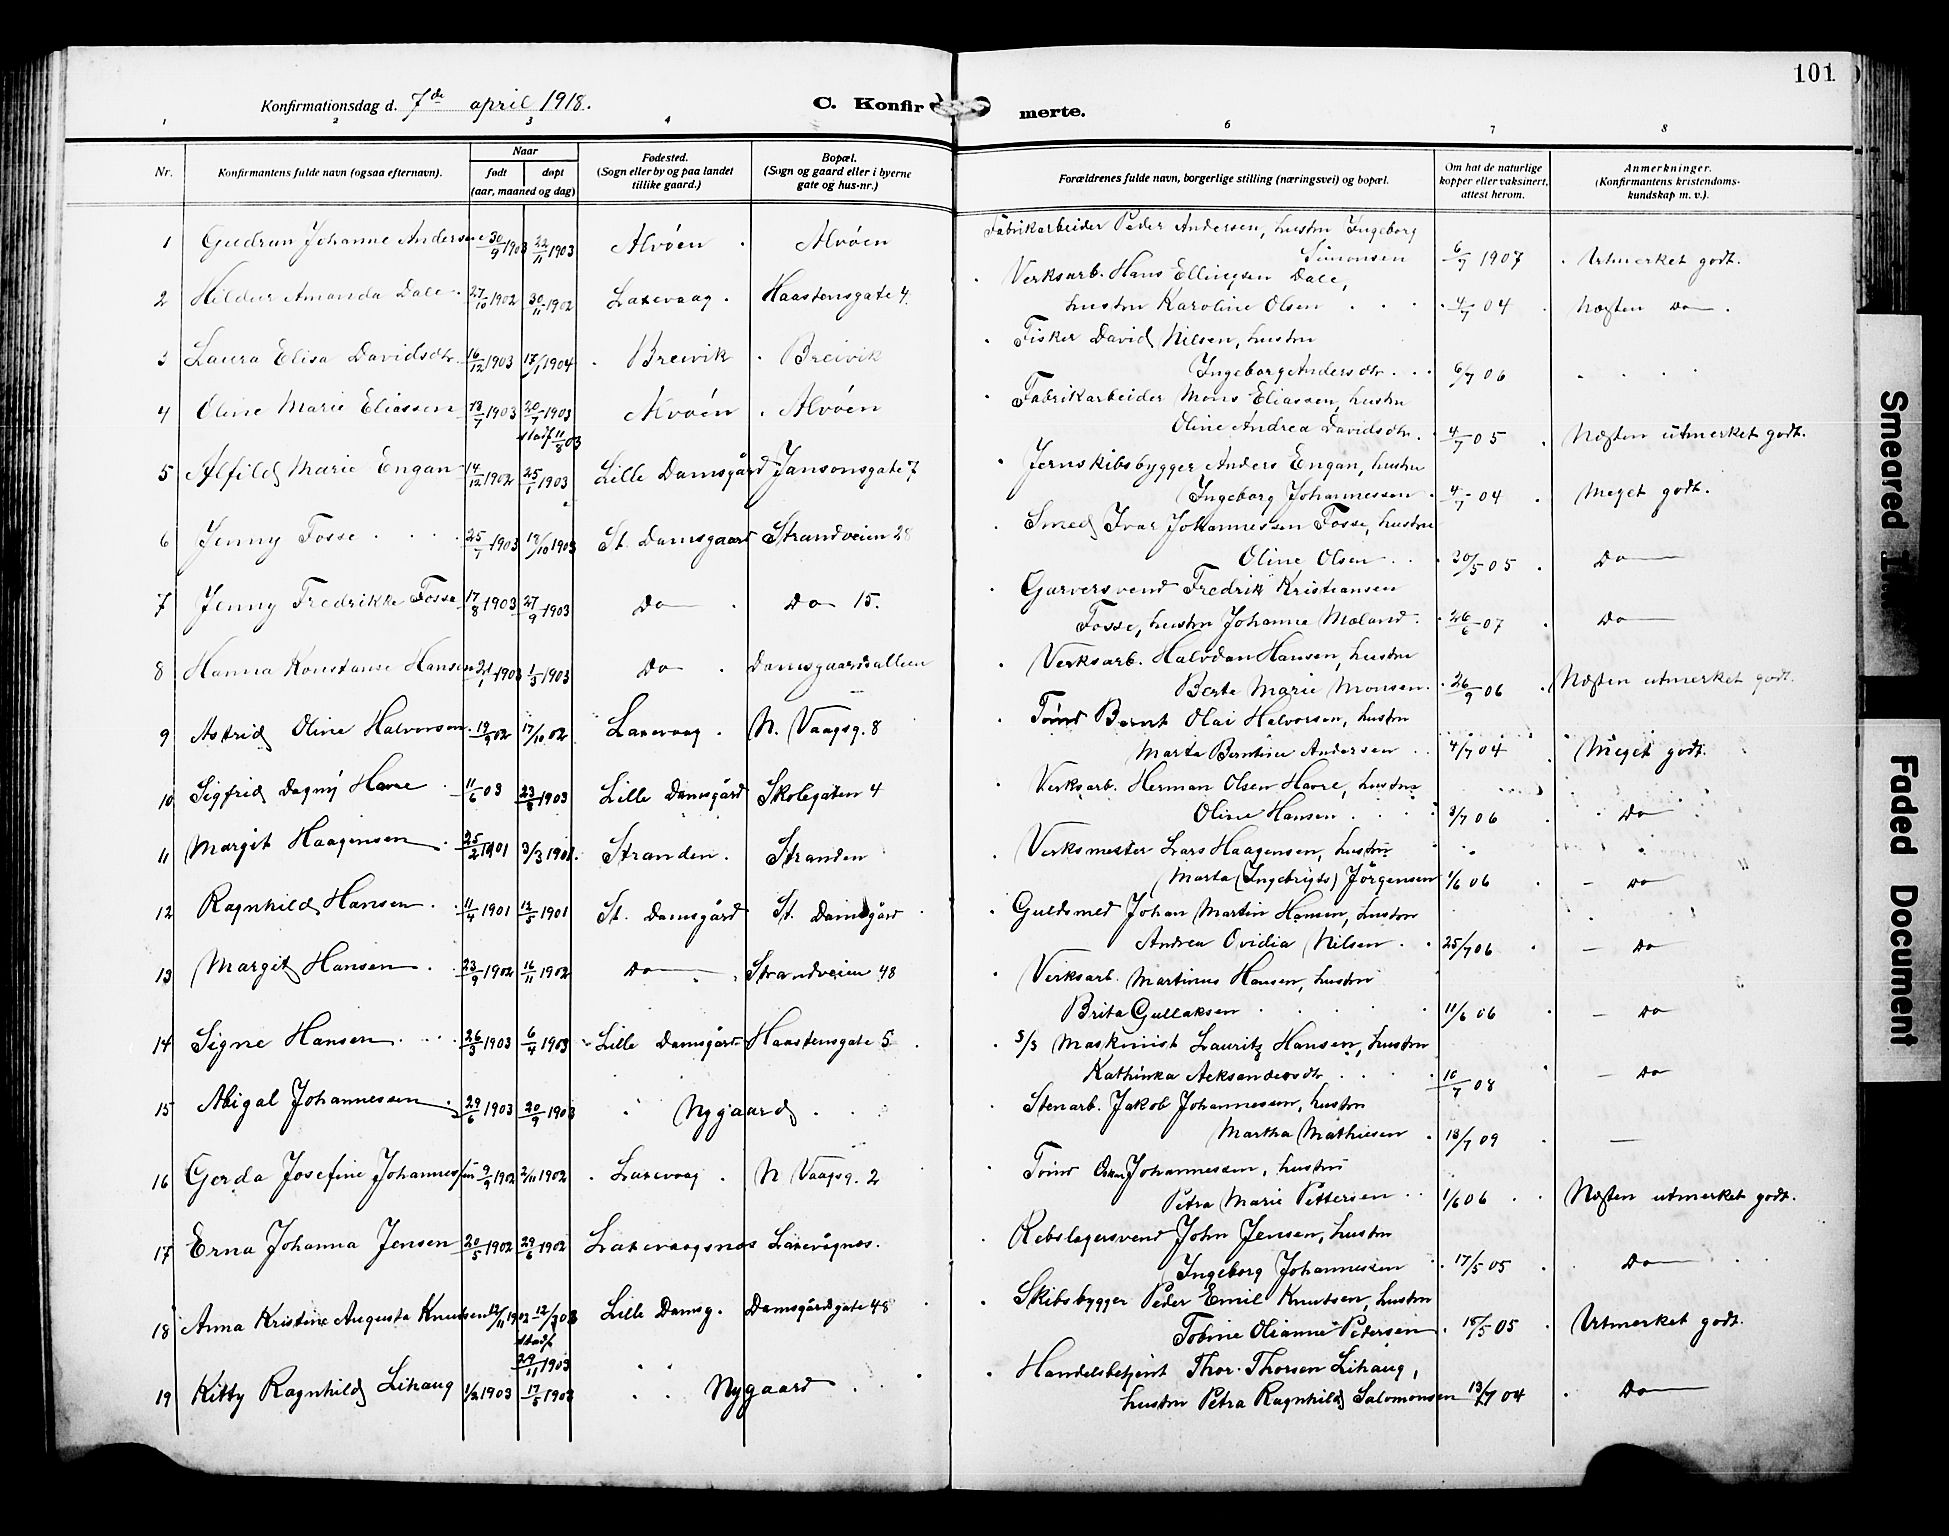 101
Konfirmationsdag d. 7de april 1918.
C. Konfirmerte.
1 2 3 4 5 6 7 8
Nr. Konfirmantens fulde navn (ogsaa efternavn). Naar født døpt (aar, maaned og dag) Fødested. (Sogn eller by og paa landet tillike gaard.) Bopæl. (Sogn og gaard eller i byerne gate og hus-nr.) Forældrenes fulde navn, borgerlige stilling (næringsvei) og bopæl. Om hat de naturlige kopper eller vaksinert, attest herom. Anmerkninger. (Konfirmantens kristendoms-kundskap m. v.).
1 Gudrun Johanne Andersen 30/9 1903 22/11 1903 Alvøen Alvöen Fabrikarbeider Peder Andersen, hustru Ingeborg
Simonsen 6/9 1907 Utmerket godt.
2 Hildur Amanda Dale 27/10 1902 30/11 1902 Laxevaag Haastensgate 4. Verksarb. Hans Ellingsen Dale,
hustru Karoline Olsen 4/7 04 Næsten Do
3 Laura Elisa Davidsdtr. 16/12 1903 17/1 1904 Breivik Breivik Fisker David Nilsen, hustru
Ingeborg Andersdtr. 6/7 06
4 Oline Marie Eliassen 13/7 1903 20/7 1903 stadf 11/8 03 Alvøén Alvøén Fabrikarbeider Mons Eliassen, hustru
Oline Andrea Davidsdtr. 4/7 05 Næsten utmerket godt.
5 Alfild Marie Engan 14/12 1902 25/1 1903 Lille Damsgård Jansonsgate 7 Jernskibsbygger Anders Engan, hustru
Ingeborg Johannessen 4/7 04 Meget godt.
6 Jenny Fosse 25/7 1903 19/10 1903 St. Damsgaard Strandveien 28 Smed Ivar Johannessen Fosse, hustru
Oline Olsen 20/5 05 Do
7 Jenny Fredrikke Fosse 17/8 1903 27/9 1903 Do Do 15. Garversvend Fredrik Kristiansen
Fosse, hustru Johanne Mæland 26/6 07 Do
8 Hanna Konstanse Hansen 21/1 1903 1/3 1903 Do Damsgaardsalleen Verksarb. Halvdan Hansen, hustru
Berte Marie Monsen 26/9 06 Næsten utmerket godt.
9 Astrid Oline Halvorsen 19/9 02 17/10 02 Laxevaag N. Vaagsg. 8 Tømd Bernt Olai Halvorsen, hustru
Marta Berntine Andersen 4/7 04 Meget godt.
10 Sigfrid Dagny Havre 11/6 03 23/8 1903 Lille Damsgård Skolegaten 4 Verksarb. Herman Olsen Havre, hustru
Oline Hansen 3/7 06 Do
11 Margit Haagensen 25/2 1901 3/3 1901. Stranden. Stranden Verksmester Lars Haagensen, hustru
Marta (Ingebrigts) Jörgensen 1/6 06 Do
12 Ragnhild Hansen 11/4 1901 12/5 1901 St. Damsgård St. Damsgård Guldsmed Johan Martin Hansen, hustru
Andrea Ovidia Nilsen 25/7 06 Do
13 Margit Hansen 23/9 1902 16/11 1902 Do Strandveien 48 Verksarb. Martinus Hansen, hustru
Brita Gullaksen 11/6 06 Do
14 Signe Hansen 26/3 1903 6/4 1903 Lille Damsgård Haastensgate 5 S/S Maskinist Lauritz Hansen, hustru
Kathinka Aeksandersdtr. 10/7 08 Do
15 Abigal Johannessen 29/6 1903 20/9 1903 Nygaard Stenarb. Jakob Johannessen, hustru
Martha Mathiesen 13/7 09
16 Gerda Josefine Johannessen 9/9 1902 2/11 1902 Laxevaag N Vaagsg. 2 Tømd Johannessen, hustru
Petra Marie Pettersen 1/6 06 Næsten utmerket godt.
17 Erna Johanna Jensen 20/5 1902 29/6 1902 Laxevaagsnes Laxevågnes. Rebslagersvend John Jensen, hustru
Ingeborg Johannessen 17/5 05 Do
18 Anna Kristine Augusta Knutsen 12/11 1902 12/7 03 stadf 29/11 1903 Lille Damsg. Damsgårdsgate 48 Skibsbygger Peder Emil Knutsen, hustru
Tobine Olianne Pedersen 15/5 05 Utmerket godt.
19 Kitty Ragnhild Lihaug 1/2 1903 17/5 1903 Nygaard Handelsbetjent Thor Thorsen Lihaug,
hustru Petra Ragnhild Salomonsen 13/7 04 Do
Smeared
Faded Document